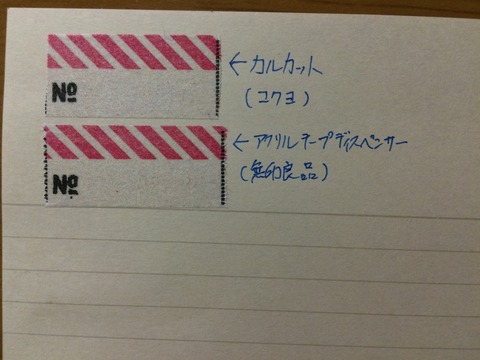 No
←カルカット
(コクヨ)
No
←アクリルテープディスペンサー
(無印良品)